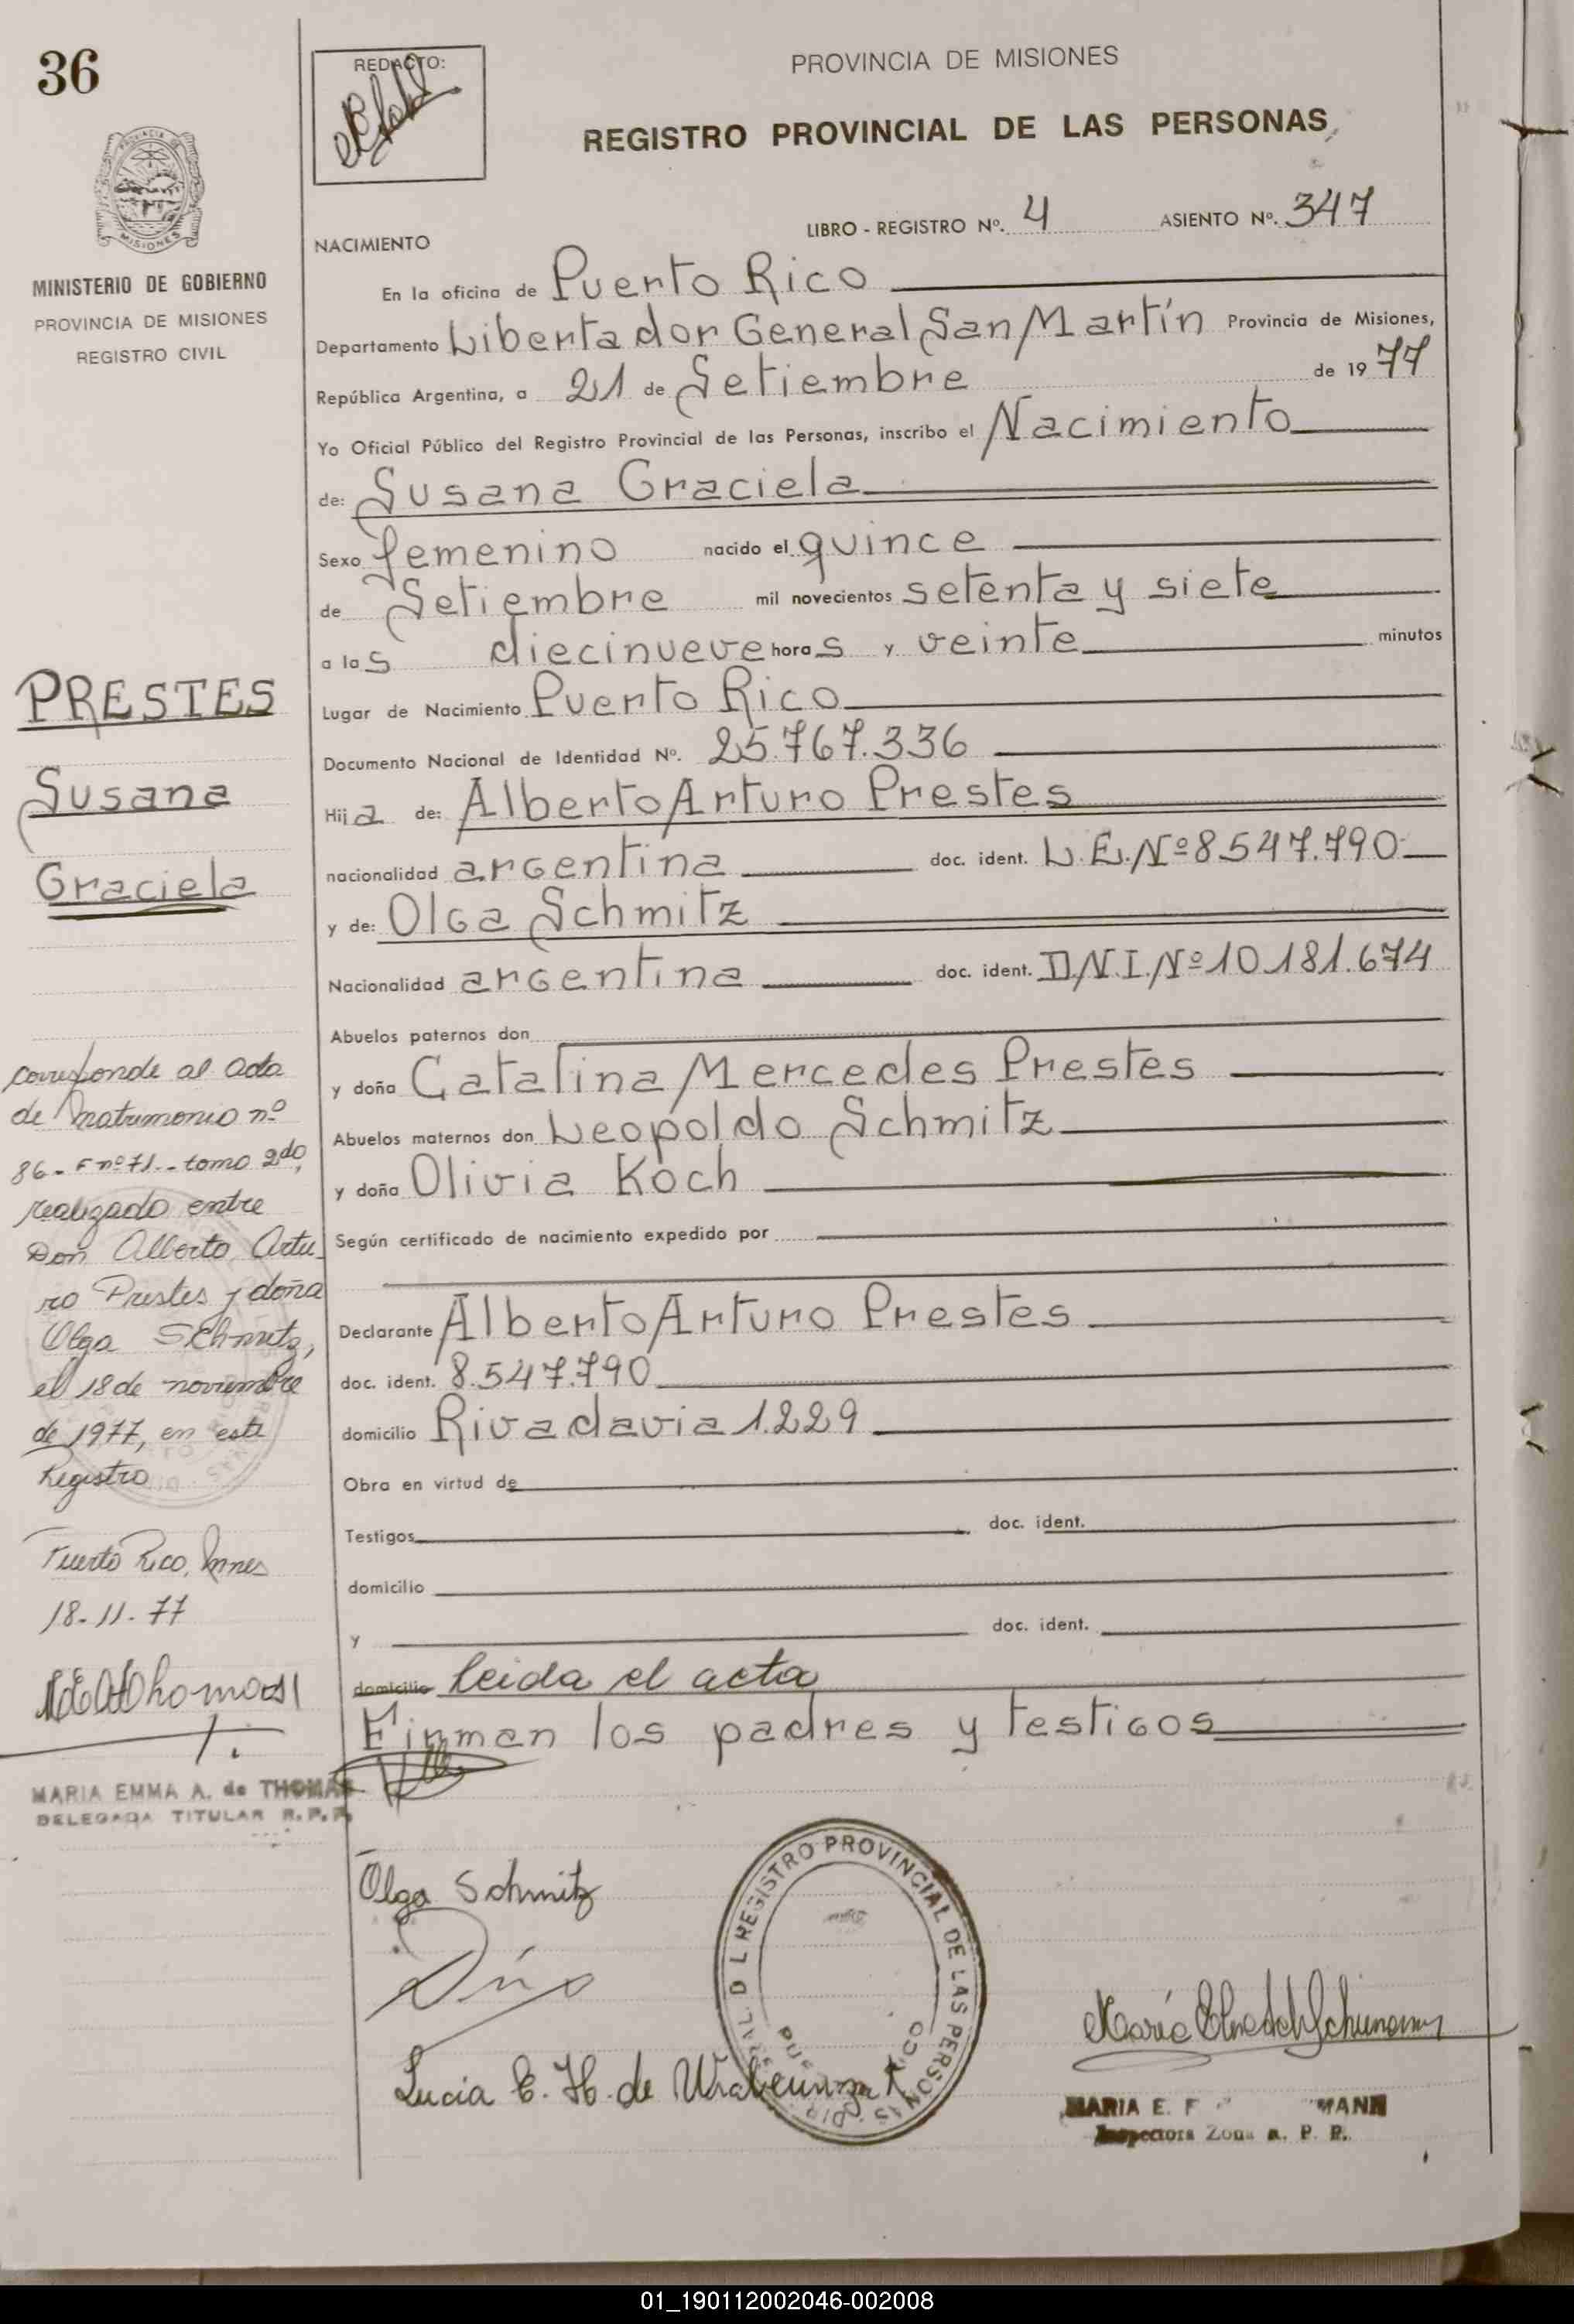 36
REDACTO:
PROVINCIA DE MISIONES
REGISTRO PROVINCIAL DE LAS PERSONAS
LIBRO - REGISTRO Nº. 4 ASIENTO Nº. 347
MISIONES
MINISTERIO DE GOBIERNO
PROVINCIA DE MISIONES
REGISTRO CIVIL
NACIMIENTO
En la oficina de Puerto Rico
Departamento Libertador General San Martín Provincia de Misiones,
República Argentina, a 21 de Setiembre de 1977
Yo Oficial Público del Registro Provincial de las Personas, inscribo el Nacimiento
de: Susana Graciela
Sexo femenino nacido el quince
de Setiembre mil novecientos setenta y siete
a las diecinueve horas y veinte minutos
Lugar de Nacimiento Puerto Rico
Documento Nacional de Identidad Nº. 25.767.336
Hija de: Alberto Arturo Prestes
nacionalidad argentina doc. ident. L.E.Nº 8.547.790
y de: Olga Schmitz
Nacionalidad argentina doc. ident. D.N.I.Nº 10.181.674
Abuelos paternos don
y doña Catalina Mercedes Prestes
Abuelos maternos don Leopoldo Schmitz
y doña Olivia Koch
Según certificado de nacimiento expedido por
Declarante Alberto Arturo Prestes
doc. ident. 8.547.790
domicilio Rivadavia 1.229
Obra en virtud de
Testigos doc. ident.
domicilio
y doc. ident.
domicilio leida el acta
Firman los padres y testigos
PRESTES
Susana
Graciela
Corresponde al acta
de matrimonio nº
86- Fnº71.- tomo 2do,
realizado entre
Don Alberto Artu-
ro Prestes y doña
Olga Schmitz,
el 18 de noviembre
de 1977, en este
Registro
Puerto Rico, Mnes
18-11-77
MARIA EMMA A. de THOMAS
DELEGADA TITULAR R.P.P.
Olga Schmitz
Lucia E. H. de
REGISTRO PROVINCIAL DE LAS PERSONAS
MARIA E. F MANN
Inspectora Zona R. P. P.
01_190112002046-002008